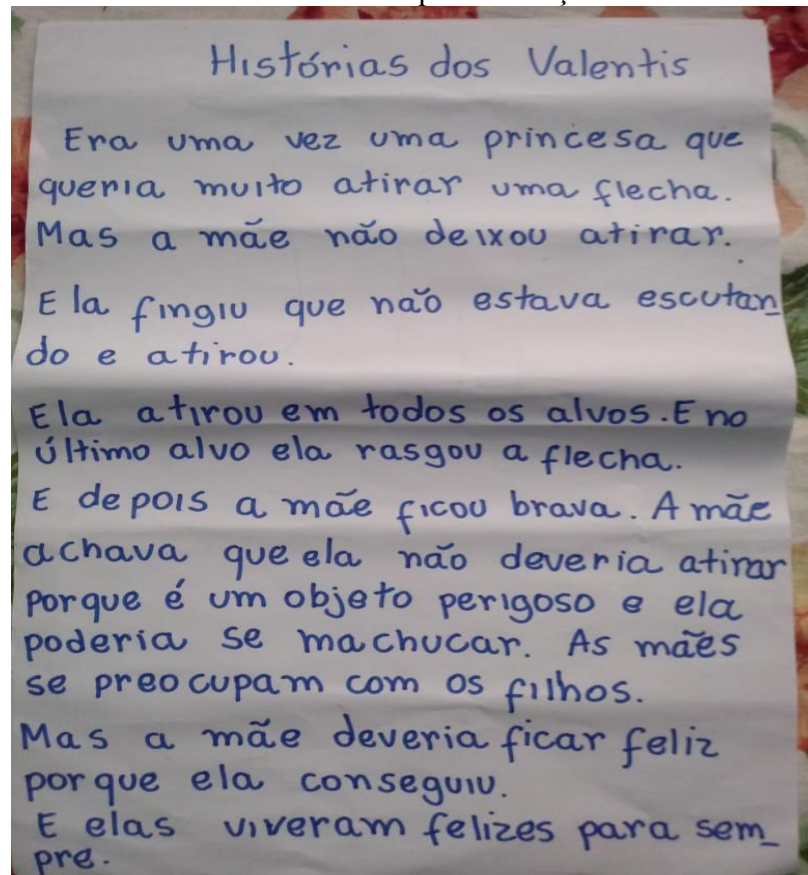 Histórias dos Valentis
Era uma vez uma princesa que
queria muito atirar uma flecha.
Mas a mãe não deixou atirar.
Ela fingiu que não estava escutan_
do e atirou.
Ela atirou em todos os alvos. E no
último alvo ela rasgou a flecha.
E depois a mãe ficou brava. A mãe
achava que ela não deveria atirar
porque é um objeto perigoso e ela
poderia se machucar. As mães
se preocupam com os filhos.
Mas a mãe deveria ficar feliz
porque ela conseguiu.
E elas viveram felizes para sem_
pre.